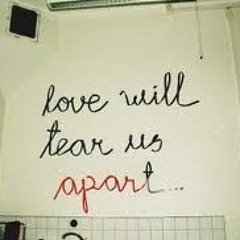 love will
tear us
apart...